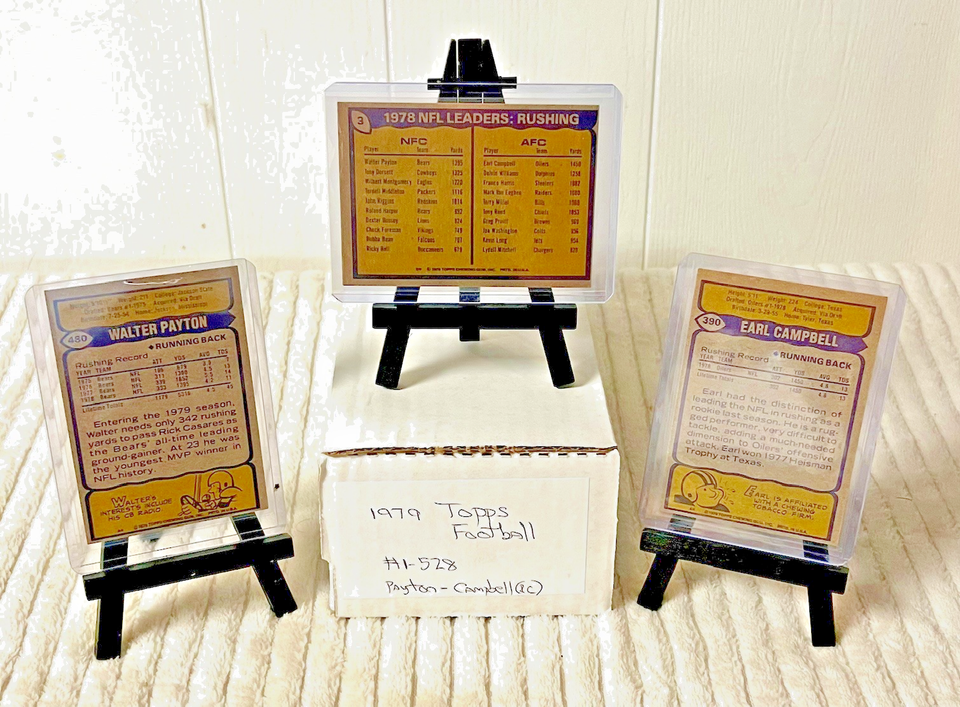 3 1978 NFL LEADERS: RUSHING
NFC AFC
Player Team Yards Player Team Yards
Walter Payton Bears 1395 Earl Campbell Oilers 1450
Tony Dorsett Cowboys 1325 Delvin Williams Dolphins 1258
Wilbert Montgomery Eagles 1220 Franco Harris Steelers 1082
Terdell Middleton Packers 1116 Mark Van Eeghen Raiders 1080
John Riggins Redskins 1014 Terry Miller Bills 1060
Roland Harper Bears 992 Tony Reed Chiefs 1053
Dexter Bussey Lions 924 Greg Pruitt Browns 960
Chuck Foreman Vikings 749 Joe Washington Colts 956
Bubba Bean Falcons 707 Kevin Long Jets 954
Ricky Bell Buccaneers 679 Lydell Mitchell Chargers 820
Weight: 211 College: Jackson State
Acquired: Via Draft
480 WALTER PAYTON
RUNNING BACK
Rushing Record ATT YDS AVG TDS
YEAR TEAM
1975 Bears NFL
1976 Bears NFL
1977 Bears NFL
1978 Bears NFL 333 1395
Lifetime Totals
Entering the 1979 season,
Walter needs only 342 rushing
yards to pass Rick Casares as
the Bears' all-time leading
ground-gainer. At 23 he was
the youngest MVP winner in
NFL history.
WALTER'S
INTERESTS INCLUDE
HIS CB RADIO
Height: 5'11 Weight: 224 College: Texas
Drafted: Oilers #1-1978 Acquired: Via Draft
Birthdate: 3-29-55 Home: Tyler, Texas
390 EARL CAMPBELL
RUNNING BACK
Rushing Record ATT YDS AVG TDS
YEAR TEAM
1978 Oilers 1450 4.8 13
Lifetime Totals 4.8 13
Earl had the distinction of
leading the NFL in rushing as a
rookie last season. He is a rug-
ged performer, very difficult to
tackle, adding a much-needed
dimension to Oilers' offensive
attack. Earl won 1977 Heisman
Trophy at Texas.
EARL IS AFFILIATED
WITH A CHEWING
TOBACCO FIRM.
1979 Topps
Football
#1-528
Payton - Campbell (RC)